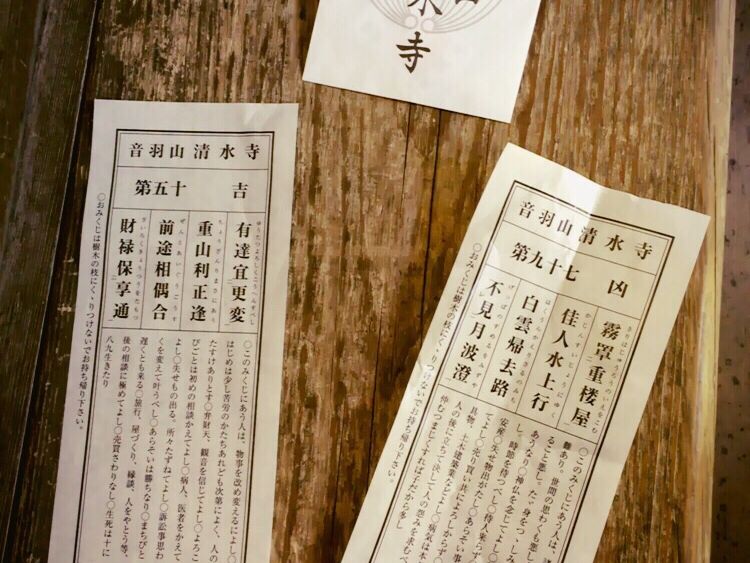 水
寺
音羽山清水寺
第五十 吉
有達宜更変
重山利正逢
前途相偶合
財禄保享通
○このみくじにあう人は、物事を改め変えるによし○
はじめは少し苦労のかたちあれども次第によく、人の
たすけありとす○弁財天、観音を信じてよし○よろこ
びごとは初めの相談かえてよし○病人、医者をかえて
よし○失せもの出る。所々たずねてよし○訴訟事思わ
くを変えて叶うべし○あらそいは勝ちなり○まちびと
遅くとも来る○旅行、屋づくり、縁談、人をやとう等、
後の相談に極めてよし○売買さわりなし○生死は十に
八九生きたり
○おみくじは樹木の枝にくゝりつけないでお持ち帰り下さい。
音羽山清水寺
第九十七 凶
霧罩重楼屋
佳人水上行
白雲帰去路
不見月波澄
○このみくじにあう人は、
難あり。世間の思わくも悪し
ること悪し。たゞ身をつゝしみ
あうなり○神仏を念じてよし
し、時節を待つべし○待人来らず
○失せ物出がたし
人の後に立って決して人の怨みを求むべ
仲むつまじくすれば子だから多し
○おみくじは樹木の枝にくゝりつけないでお持ち帰り下さい。